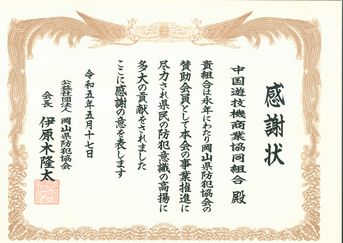 感謝状
中国遊技機商業協同組合 殿
貴組合は永年にわたり岡山県防犯協会の
賛助会員として本会の事業推進に
尽力され県民の防犯意識の高揚に
多大の貢献をされました
ここに感謝の意を表します
令和五年五月十七日
公益社団法人 岡山県防犯協会
会長 伊原木隆太